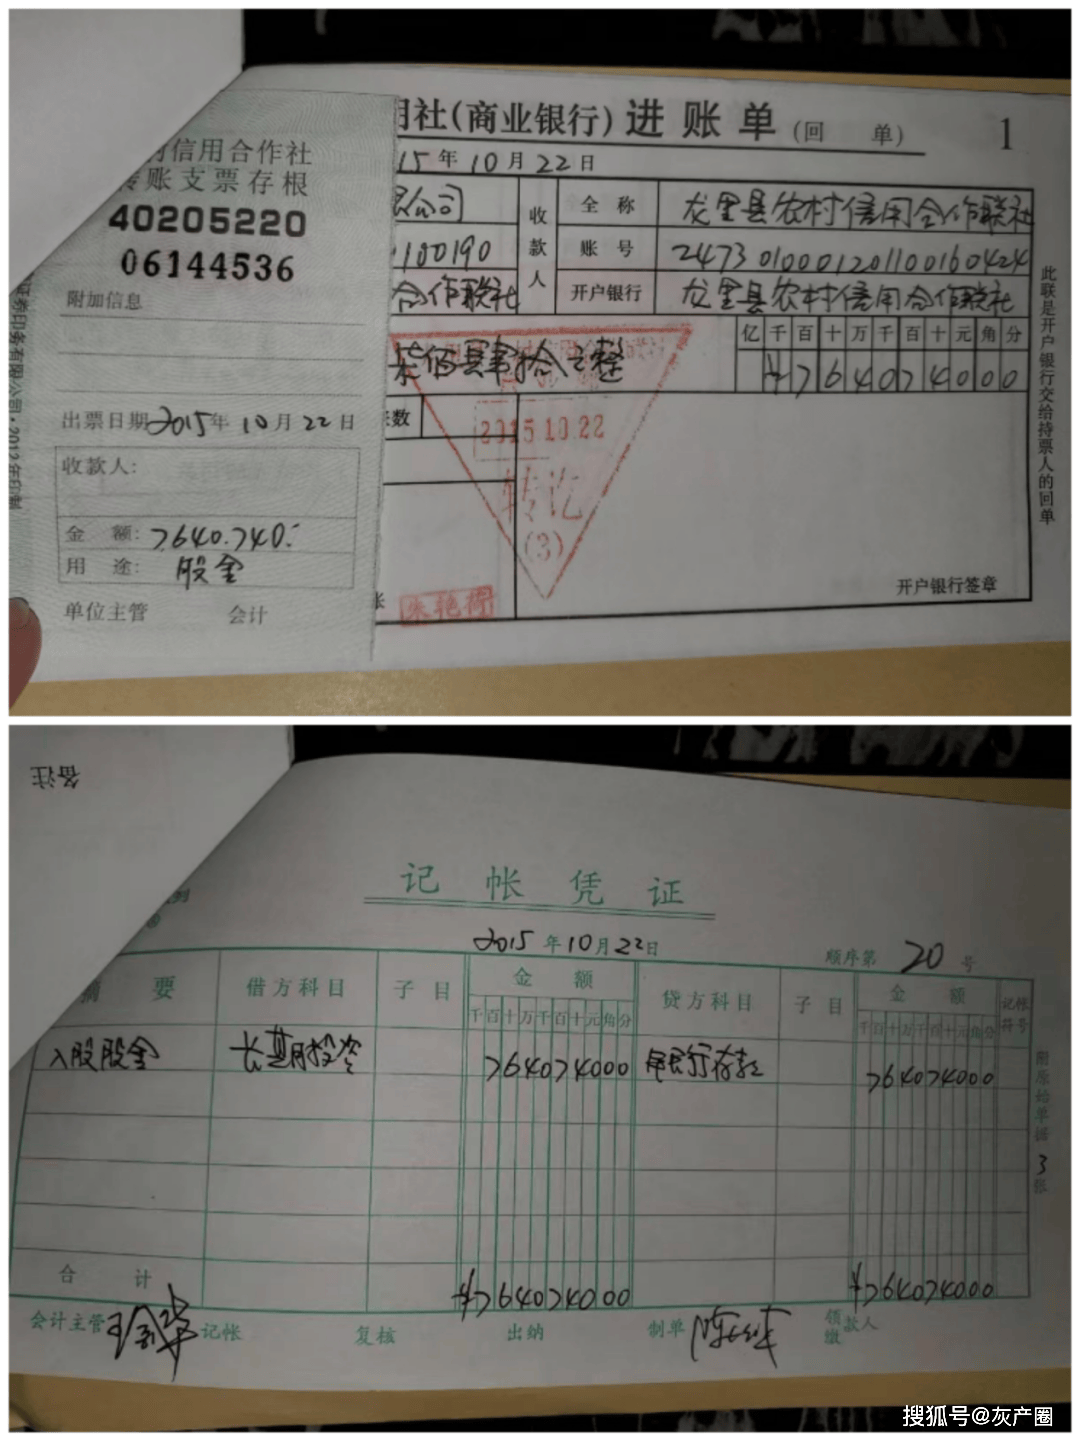 信用合作社
转账支票存根
40205220
06144536
附加信息
出票日期 2015年10月22日
收款人:
金 额: 7640740.-
用 途: 股金
单位主管 会计
用社(商业银行) 进 账 单 (回 单) 1
15年10月22日
限公司
收款人
全 称 龙里县农村信用合作联社
1100190
账 号 2473010001201100160424
合作联社
开户银行 龙里县农村信用合作联社
柒佰肆拾元整
亿千百十万千百十元角分
¥764074000
张数
2015.10.22
转讫
(3)
开户银行签章
此联是开户银行交给持票人的回单
备注
记 帐 凭 证
2015年10月22日
顺序第 20 号
摘 要 借方科目 子 目 金 额 贷方科目 子 目 金 额 记帐符号
千百十万千百十元角分 千百十万千百十元角分
入股股金 长期投资 764074000 银行存款 764074000
附原始单据 3 张
合 计 ¥764074000 ¥764074000
会计主管 记帐 复核 出纳 制单 领缴款人
搜狐号@灰产圈